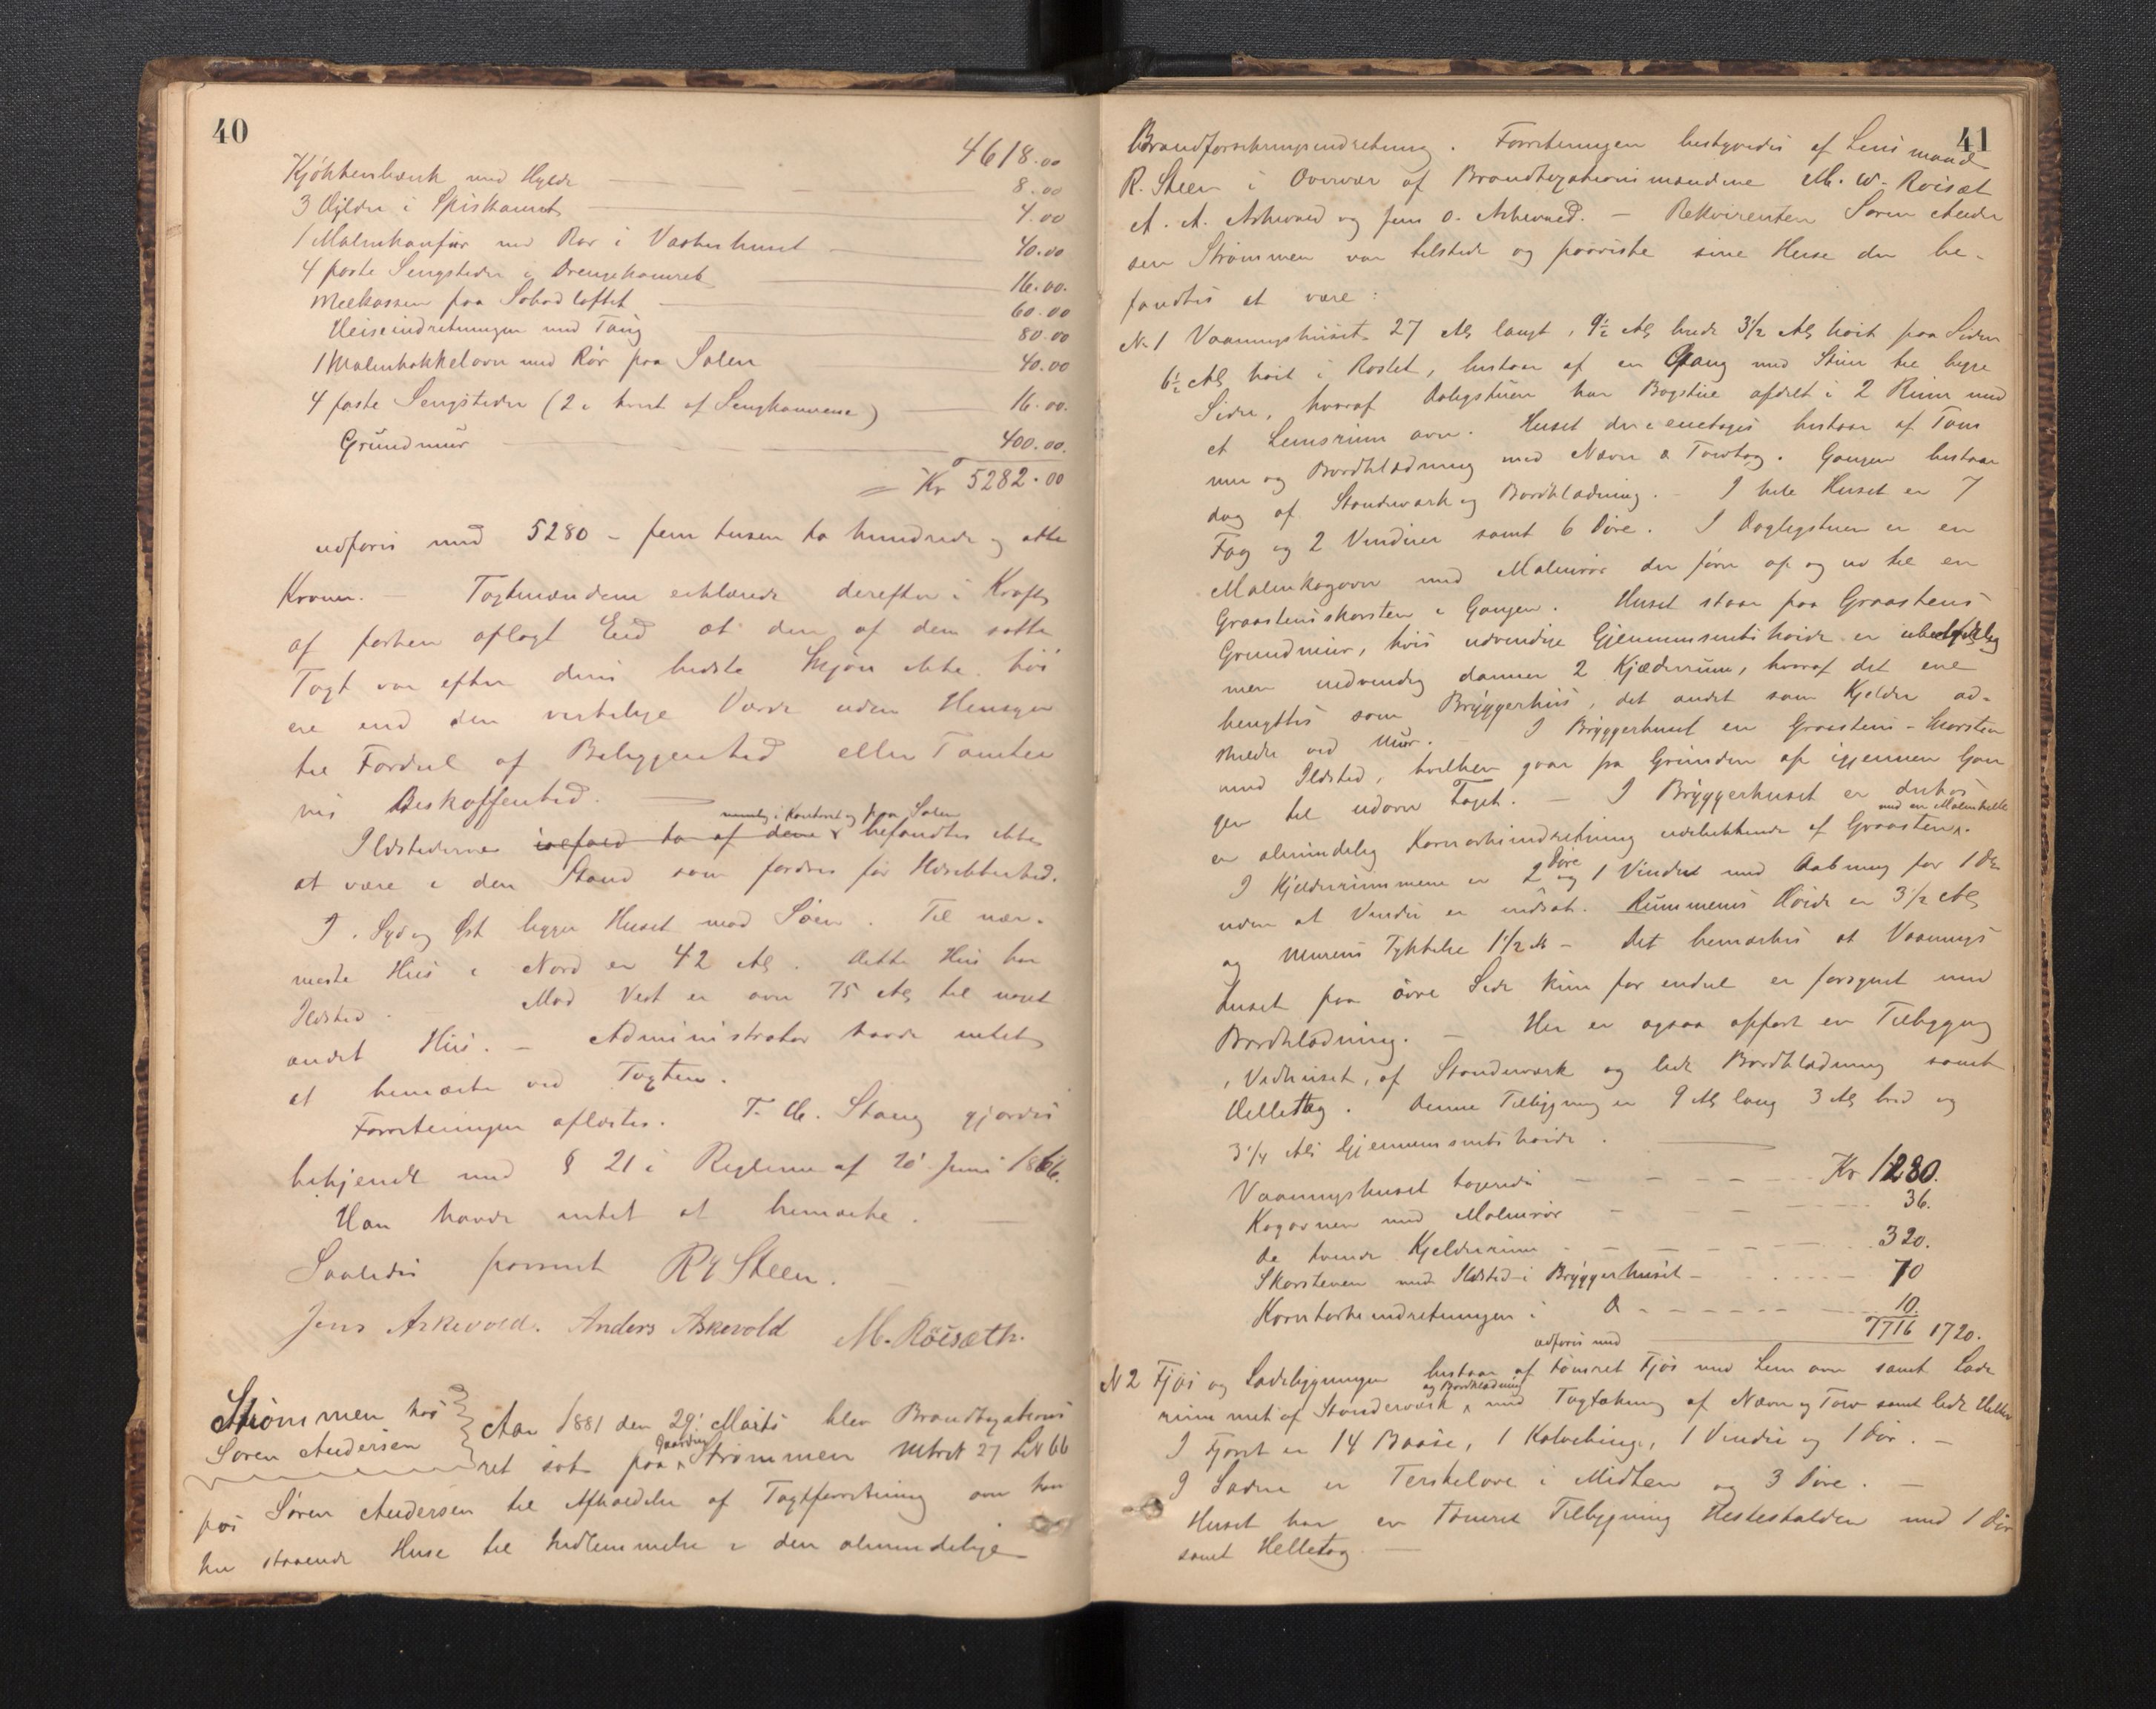 40
4618.00
Kjøkkenbænk med Hylde 8.00
3 Hylder i Spiskamret 4.00
1 Malmkamfur med Rør i Vaskerhuset 40.00
4 faste Sengsteder i Drengekamret 16.00.
Melkassen paa Loftet 60.00
Heiseindretningen med Taug 80.00
1 Malmkakkelovn med Rør paa Salen 40.00
4 faste Sengsteder (2 i hvert af Sengkamrene) 16.00.
Grundmur 400.00.
= Kr 5282.00
udføris med 5280 - fem tusen to hundrede og otti
Kroner. — Taxtmændene erklærede derefter i Kraft
af forhen aflagt Eed at den af dem satte
Taxt var efter deris bedste Skjøn ikke høi
ere end den virkelige Værdi uden Hensyn
til Fordel af Beliggenhed eller Tomten
nis Beskaffenhed. —
nemlig i Kontoret og paa Salen
Ildstederne isefald to af dem befandtes ikke
at være i den Stand som fordres for Ildsikkerhed.
I Syd og Øst ligger Huset mod Søen. Til nær-
meste Hus i Nord er 42 Al. Dette Hus har
Ildsted. Mod Vest er over 75 Al til noget
andet Hus. — Administrator havde intet
at bemærke ved Taxten.
Forretningen oplæstes. T. M. Stang gjordes
bekjendt med § 21 i Reglerne af 20 Juni 1866.
Han havde intet at bemærke. —
Saaledes passeret R Steen.
Jens Askevold. Anders Askevold M. Röisæth.
Strømmen hos Aar 1881 den 29' Marts blev Brandtaxations
Søren Andersen ret sat paa Gaarden Strømmen Mtr N 27 LN 66
hos Søren Andersen til Afholdelse af Taxtforretning over han
her staaende Huse til Indlemmelse i den almindelige
41
Brandforsikringsindretning. Forretningen bestyredes af Lens mand
R. Steen i Overvær af Brandtaxationsmændene M. W. Röisæt
A. A. Askevold og Jens O. Askevold. — Rekvirenten Søren Ander
sen Strømmen var tilstede og paaviste sine Huse der be-
fandtes at være:
N. 1 Vaaningshuset 27 Al langt, 9½ Al bredt 3½ Al høit paa Siden
6½ Al høit i Røstet, bestaar af en Gang med Stuer til begge
Sider, hvoraf Dagligstuen har Bagstue afdelt i 2 Rum med
et Lemsrum over. Huset der er enetages bestaar af Tøm
mer og Bordklædning med Næver & Torvtag. Gangen bestaar
dog af Standerværk og Bordklædning. — I hele Huset er 7
Fag og 2 Vinduer samt 6 Døre. I Dagligstuen er en
Malmkogovn med Malmrør der fører op og ud til en
Graastensskorsten i Gangen. Huset staar paa Graastens
Grundmur, hvis udvendige Gjennemsnitshøide er ubetydelig
men indvendig danner 2 Kjælderrum, hvoraf det ene
benyttes som Bryggerhus, det andet som Kjelder ad-
skilte ved Mur. — I Bryggerhuset en Graastens-Skorsten
med Ildsted, hvilken gaar fra Grunden op igjennem Gan
gen til udover Taget. — I Bryggerhuset er derhos
med en Malmhelle
en almindelig Korntørkeindretning udelukkende af Graasten.
I Kjelderrummene er 2 Døre og 1 Vindue med Aabning for 1 Do
uden at Vindu er indsat. Rummenes Høide er 3½ Al
og Murens Tykkelse 1½ Al — Det bemærkes at Vaanings
huset paa øvre Side kun for endel er forsynet med
Bordklædning. — Her er ogsaa opført en Tilbygning
, Vedhuset, af Standerværk og lidt Bordklædning samt
Helletag. Denne Tilbygning er 9 Al lang 3 Al bred og
3¼ Al Gjennemsnitshøide. —
Vaaningshuset taxeredes Kr 1280.
Kogovnen med Malmrør 36.
de tvende Kjelderrum 320.
Skorstenen med Ildsted i Bryggerhuset 70
Korntørkeindretningen i D 10.
udføris med 1716 1720.
N 2 Fjøs og Ladebygningen bestaar af tømret Fjøs med Lem over samt Lade
og Bordklædning
rummet af Standerværk med Tagtækning af Næver og Torv samt lidt Heller
I Fjøset er 14 Baase, 1 Kalvebinge, 1 Vindu og 1 Dør. —
I Laden er Terskelove i Midten og 3 Døre. —
Huset har en tømret Tilbygning Hestestalden med 1 Dør
samt Helletag. —